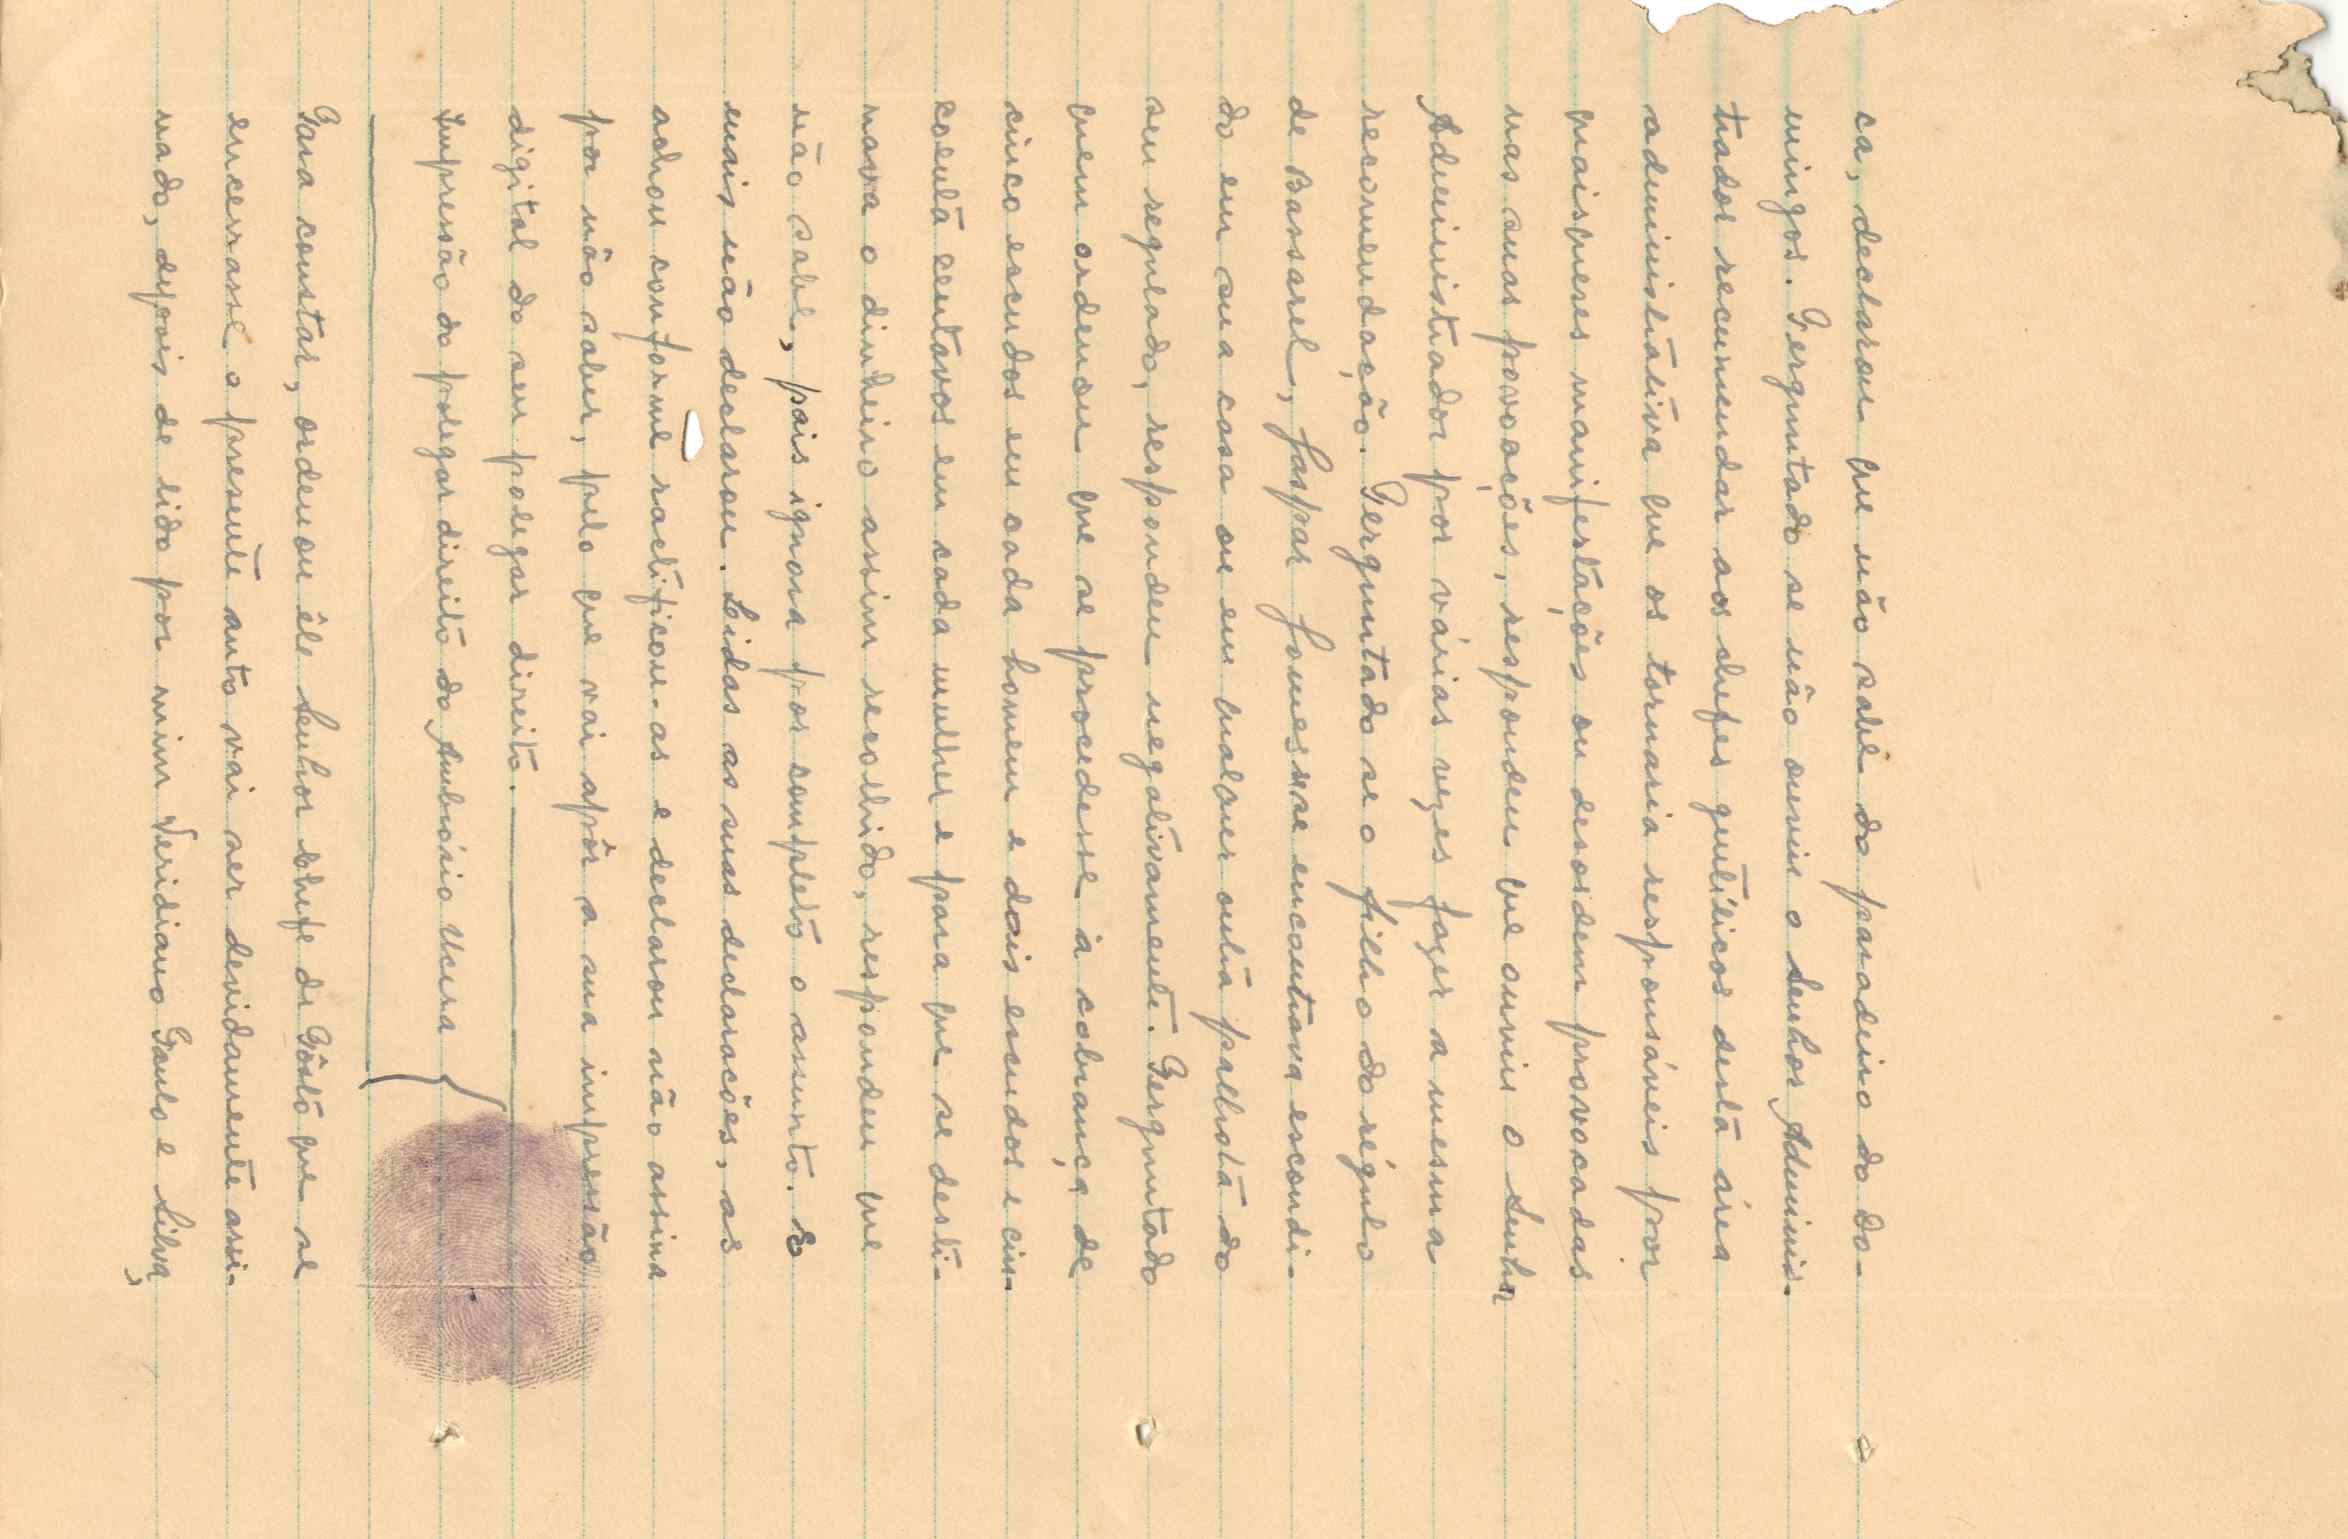 ca, declarou que não sabe do paradeiro do do-
mingos. Perguntado se não ouviu o Senhor Adminis-
trador recumendar aos chefes gentílicos desta área
administrativa que os tornaria responsáveis por
quaisqueres manifestações ou desordem provocadas
nas suas povoações, respondeu que ouviu o Senhor
Administrador por várias vezes fazer a mesma
recomendação. Perguntado se o filho do régulo
de Bassarel, Gaspar Gomes se encontrava escondi-
do em sua casa ou em qualquer outra palhota do
seu regulado, respondeu negativamente. Perguntado
quem ordenou que se procedesse à cobrança de
cinco escudos em cada homem e dois escudos e cin-
coenta centavos em cada mulher e para que se desti-
nava o dinheiro assim recolhido, respondeu que
não sabe, pois ignora por completo o assunto. E
mais não declarou. Lidas as suas declarações, as
achou conforme ractificou-as e declarou não assina
por não saber, pelo que vai apôr a sua impressão
digital do seu polegar direito.
Impressão do polegar direito do Ambrósio Ucura
Para constar, ordenou êle Senhor Chefe de Pôsto que se
encerrasse o presente auto vai ser devidamente assi-
nado, depois de lido por mim Veridiano Paulo e Silva,